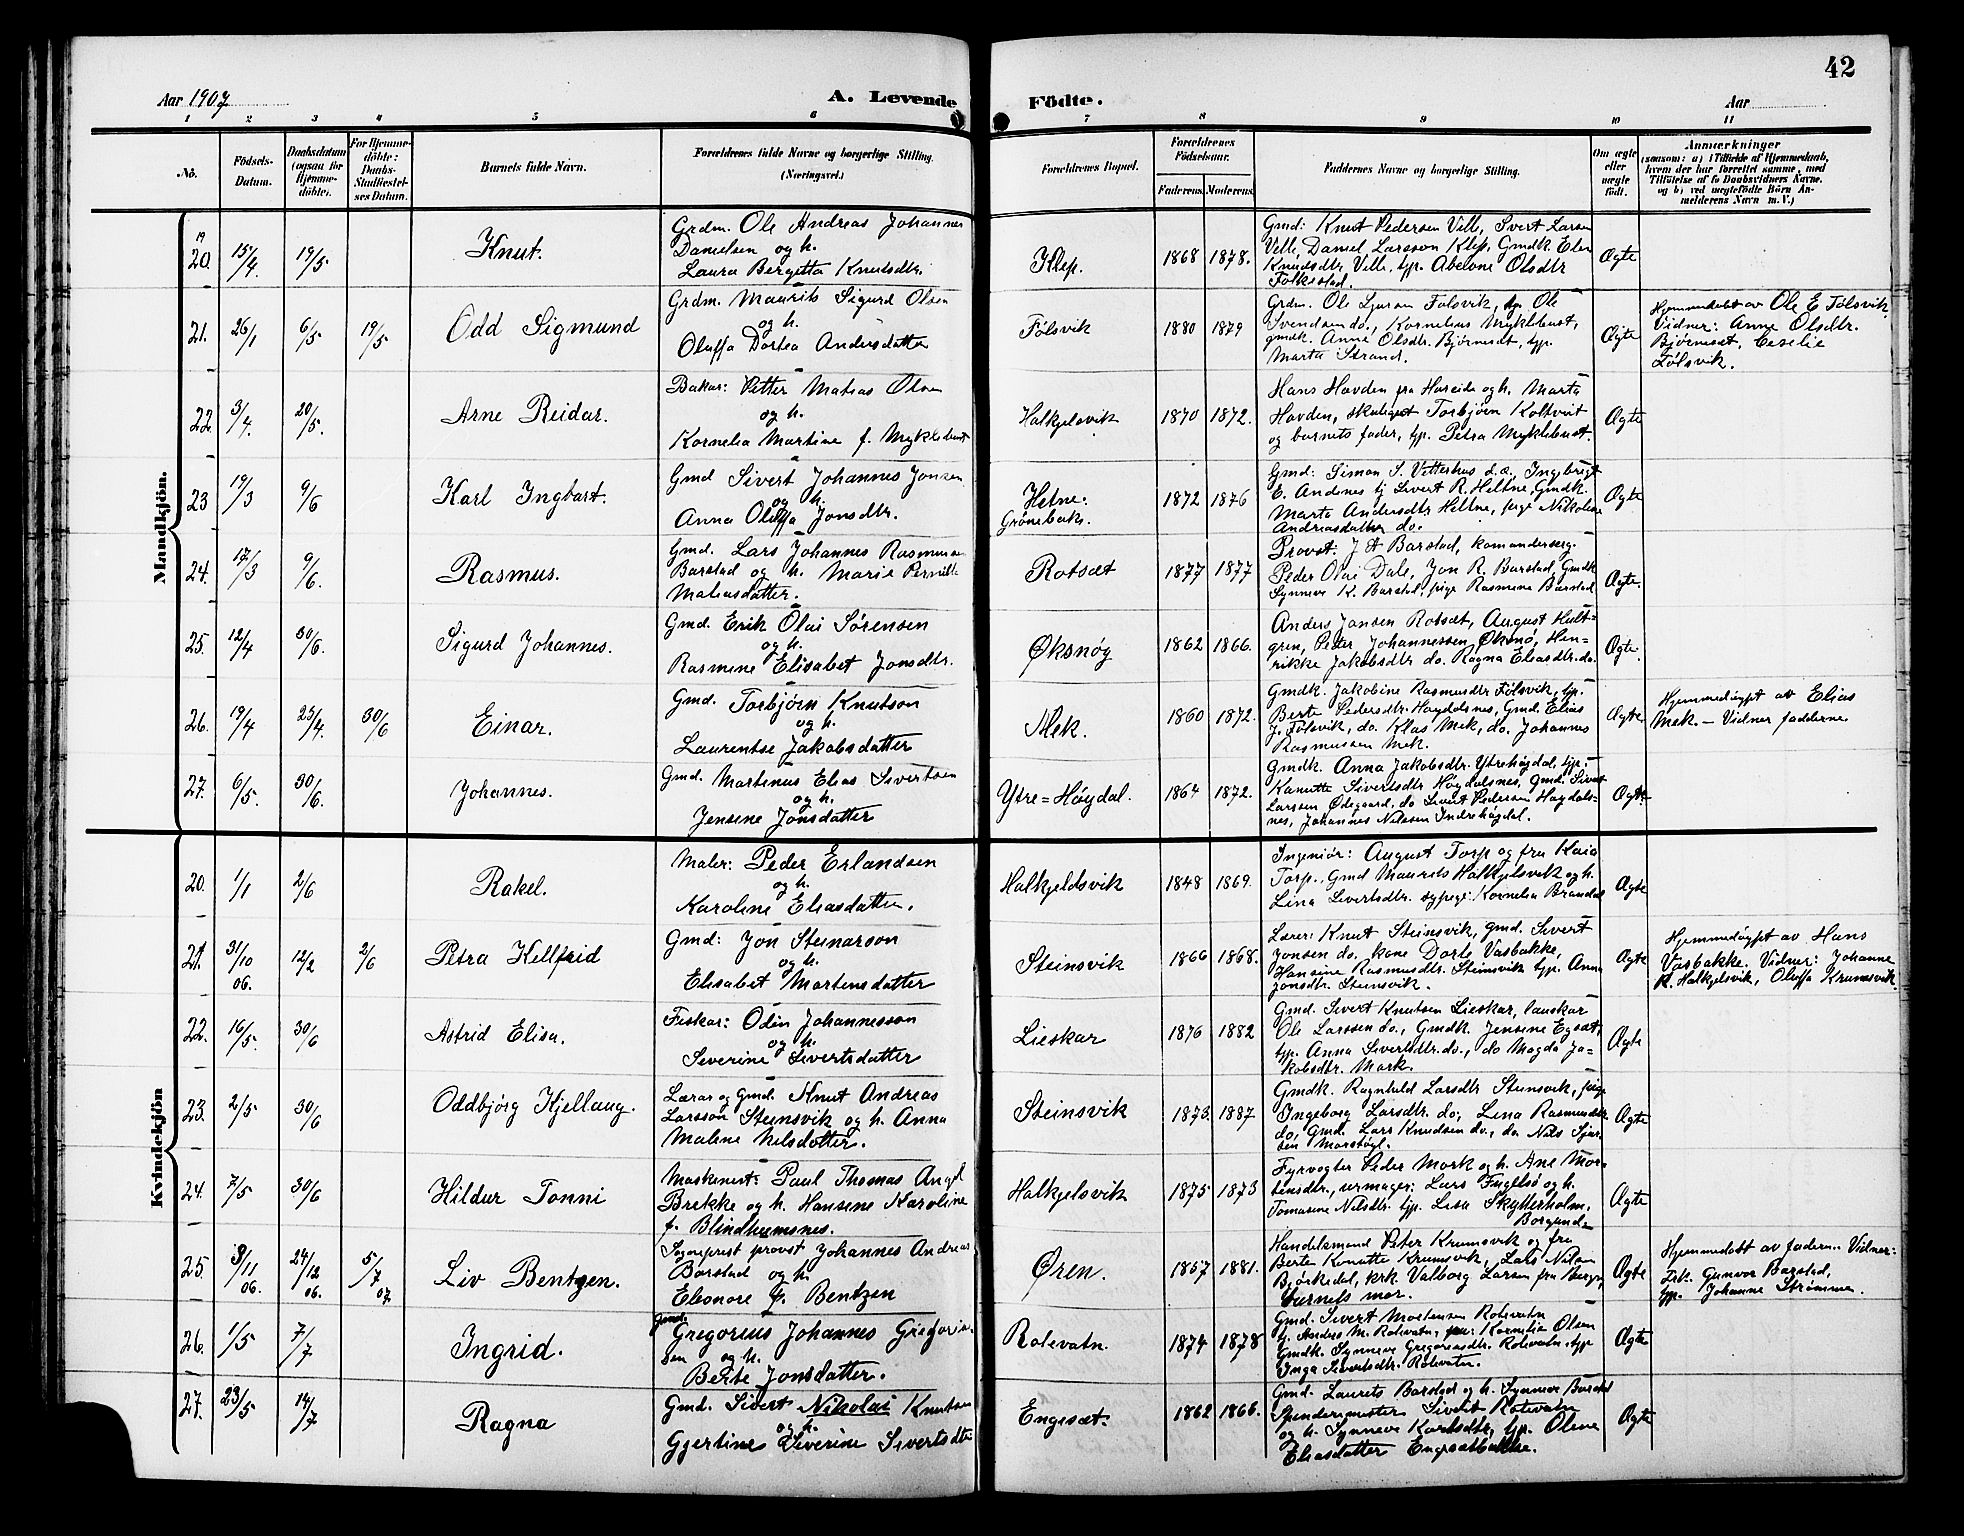 42
Aar 1907
A. Levende
Födte.
Aar
1 2 3 4 5 6 7 8 9 10 11
No.
Födsels-Datum.
Daabsdatum (ogsaa for Hjemme-döbte).
For Hjemme-döbte: Daabs-Stadfæstel-ses Datum.
Barnets fulde Navn.
Forældrenes fulde Navne og borgerlige Stilling. (Næringsvei.)
Forældrenes Bopæl.
Forældrenes Födselsaar.
Faderens. Moderens.
Faddernes Navne og borgerlige Stilling.
Om ægte eller uægte födt.
Anmærkninger
(saasom: a) i Tilfælde af Hjemmedaab, hvem der har forrettet samme, med Tilföielse af to Daabsvidners Navne, og b) ved uægtefödte Börn An-melderens Navn m. V.)
Mandkjön.
19
20. 15/4. 19/5 Knut.
Grdm. Ole Andreas Johannes
Danielsen og h.
Laura Bergitta Knutsdtr.
Klep. 1868 1878.
Gmd: Knut Pedersen Velle, Sivert Larsen
Velle, Daniel Larsson Klep. Gmdk. Elen
Knudsdtr Velle, typ. Abelone Olsdtr
Folkestad.
Ægte
21. 26/1 6/5 19/5 Odd Sigmund
Grdm. Maurits Sigurd Olsen
og h.
Oluffa Dortea Andersdatter
Følsvik 1880 1879
Grdm. Ole Sjursen Følsvik, Ole
Svendsen do., Kornelius Myklebust,
gmdk. Anne Olsdtr. Bjørneset, typ.
Marta Strand.
Ægte
Hjemmedøbt av Ole E Følsvik
Vidner: Anne Olsdtr.
Bjørneset, Ceselie
Følsvik.
22. 3/4. 20/5. Arne Reidar.
Bakar: Petter Matias Olsen
og h.
Kornelia Martine f. Myklebust
Halkjelsvik 1870 1872.
Hans Havden fra Hareide og h. Marta
Havden, Torbjørn
og barnets fader, typ. Petra Myklebust.
Ægte
23 19/3 9/6 Karl Ingbart.
Gmd Sivert Johannes Jonsen
og h.
Anna Oluffa Jonsdtr.
Hetne:
Grønebak.
1872 1876
Gmd: Simon S. Vatterhus d.æ., Ingebrigt
E. Andenes tj Sivert R. Heltne, Gmdk.
Marta Andersdtr Heltne, pige Nikoline
Andreasdatter do.
Ægte
24. 17/3 9/6. Rasmus.
Gmd. Lars Johannes Rasmussen
Barstad og h. Marie Pernille
Matiasdatter.
Rotsæt 1877 1877
Provst: J A Barstad,
Peder Olai Dale, Jon R. Barstad, Gmdk
Synneve K. Barstad, pige Rasmine Barstad
Ægte.
25. 12/4 30/6. Sigurd Johannes.
Gmd. Erik Olai Sørensen
og h.
Rasmine Elisabet Jonsdtr.
Øksnøg 1862 1866.
Anders Jansen Rotsæt, August Hult-
gren, Peter Johannessen Øksnø, Hen-
rikke Jakobsdtr do. Ragna Eliasdtr. do.
Ægte.
26. 19/4 23/4. 30/6 Einar.
Gmd. Torbjørn Knutson
og h.
Laurentse Jakobsdatter
Mek. 1860 1872.
Gmdk. Jakobine Rasmusdtr Følsvik, typ.
Berte Pedersdtr. Høydalsnes, Gmd. Elias
J. Følsvik, do. Klas Mek, do. Johannes
Rasmussen Mek.
Ægte
Hjemmedøypt av Elias
Mek – Vidner fadderne
27. 6/5. 30/6. Johannes.
Gmd. Martinus Elias Sivertsen
og h.
Jensine Jonsdatter
Ytre=Høydal. 1864 1872.
Gmdk. Anna Jakobsdtr. Ytrehøydal, typ.
Kanutte Siversdtr Høydalsnes, Gmd. Sivert
Larssen Ødegaard, do Sivert Pedersen Høydals-
nes, Johannes Nilssen Indrehøydal.
Ægte
Kvindekjön
20. 1/1 2/6 Rakel.
Maler: Peder Erlandsen
og h.
Karoline Eliasdatter.
Halkjeldsvik 1848 1869.
Ingeniør: August Torp og fru Kaia
Torp. Gmd Maurits Halkjelsvik og h.
Lina Sivertsdtr. sypige: Kornelia Brandal
Ægte
21. 31/10 06. 12/2 2/6 Petra Kellfrid
Gmd: Jon Steinarson
og h.
Elisabet Martensdatter
Steinsvik 1866 1868.
Lærer: Knut Steinsvik, gmd. Sivert
Jonsen do. kone Dorte Vasbakke,
Hansine Rasmusdtr. Steinsvik typ. Anna
Jonsdtr. Steinsvik.
Ægte
Hjemmedøypt av Hans
Vasbakke. Vidner: Johanne
R. Halkjelsvik, Oluffa Krumsvik
22. 16/5. 30/6 Astrid Elisa.
Fiskar: Odin Johannesson
og h.
Severine Sivertsdatter
Lieskar 1876 1882
Gmd. Sivert Knutsen Lieskar, lauskar
Ole Larssen do., Gmdk. Jensine Egsæt,
typ. Anna Sivertsdtr. do., do Magda Ja-
kobsdtr. Mark.
Ægte
23. 2/5 30/6 Oddbjørg Kjellaug.
Lærar og Gmd. Knut Andreas
Larsson Steinsvik og h. Anna
Malene Nilsdatter.
Steinsvik 1873. 1887
Gmdk. Ragnhild Larsdtr Steinsvik, pige
Ingeborg Larsdtr. do., Lina Rasmusdtr
do, Gmd. Lars Knudsen do., do. Nils Sjur-
sen
Ægte
24. 7/5 30/6 Hildur Tonni
Maskinist: Paul Thomas Angel
Brekke og h. Hansine Karoline
f. Blindheimsnes.
Halkjelsvik 1875 1873
Fyrvogter Peder Mork og h. Ane Mor-
tensdtr., urmager: Lars Fugelsø og h.
Tomasine Nilsdtr. typ. Lisa Skytterholm.
Borgund
Ægte
25. 3/11 06. 24/12 06. 5/7 07. Liv Bentzen.
Sogneprest provst Johannes Andreas
Barstad og h.
Eleonore f. Bentzen
Øren. 1857 1881.
Handelsmand Peter Krumsvik og fru
Berte Kanutte Krumsvik, Lars Nilsen
Bjørkedal, frk. Valborg Larsen fra Bergen,
barnets mor.
Ægte
Hjemmedøbt av faderen. Vidner:
Frk. Gunvor Barstad,
typ. Johanne Strømme.
26. 1/5 7/7 Ingrid.
Gmd.
Gregorius Johannes Gregorius-
sen og h.
Berte Jonsdatter.
Rotevatn. 1874 1878
Gmd. Sivert Mortensen Rotevatn
tj. Anders M. Rotevatn, Kornelie Olsen
Gmdk. Synneve Gregoriusdtr. Rotevatn, typ
Inga Sivertsdtr. Rotevatn.
Ægte
27. 23/5 14/7 Ragna
Gmd. Sivert Nikolai Knutsen
og h.
Gjertine Severine Sivertsdtr
Engeset. 1862 1866.
Gmd. Laurits Barstad og h. Synneve Barstad
Sivert Rotevatn
og h. Synneve Karlsdtr, typ. Oline
Eliasdatter Engesætbakke.
Ægte